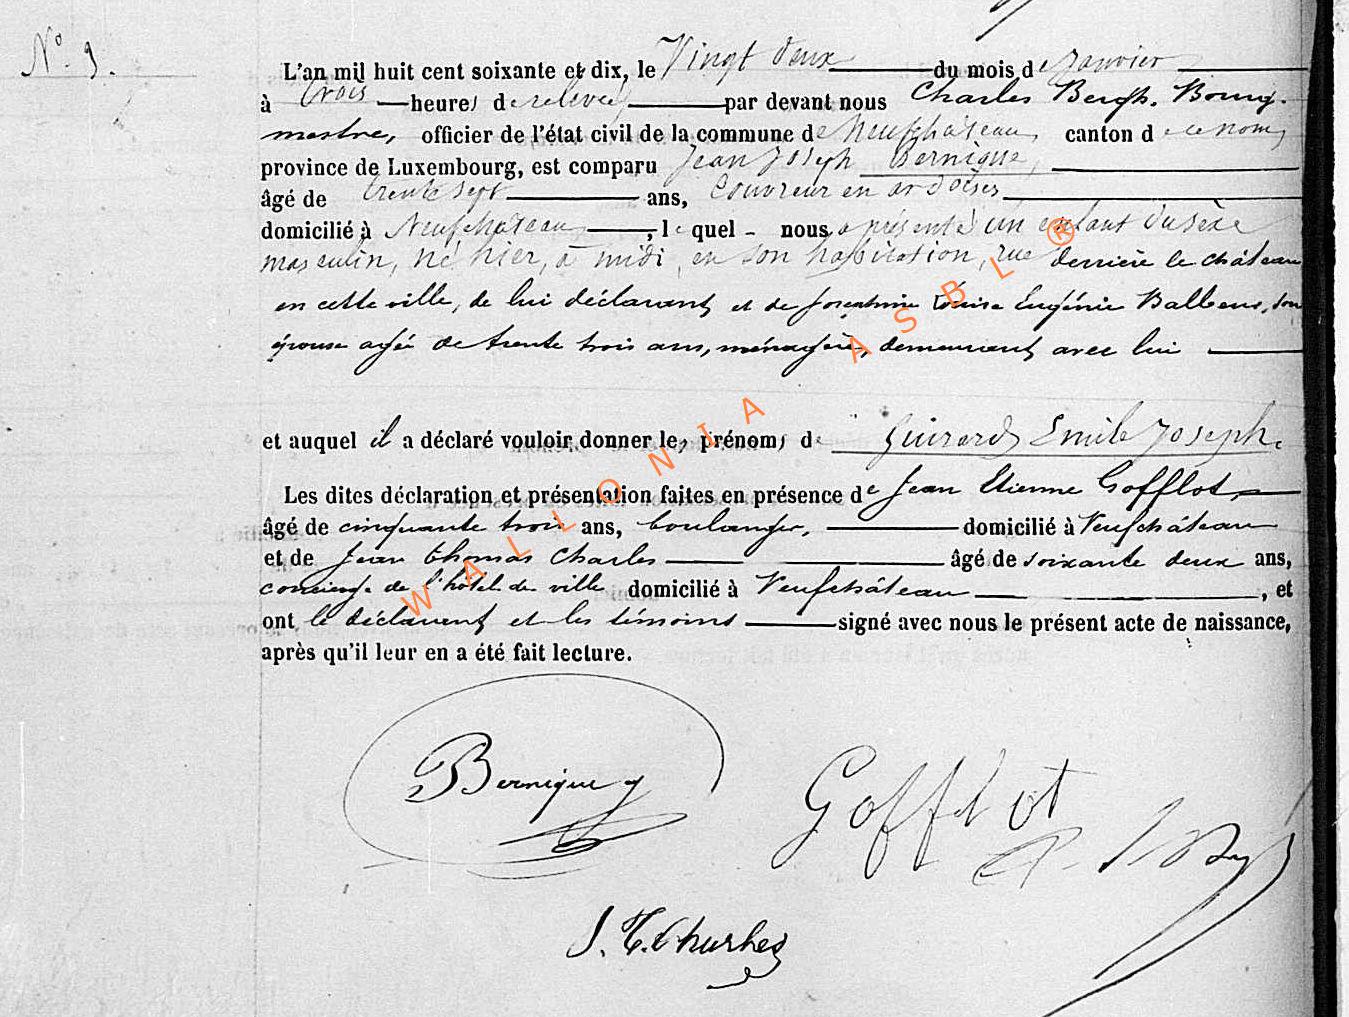 N° 9.
L'an mil huit cent soixante et dix, le Vingt deux du mois de Janvier
à trois heures de relevée par devant nous Charles Bergh. Bourg-
mestre, officier de l'état civil de la commune de Neufchâteau, canton de ce nom,
province de Luxembourg, est comparu Jean Joseph Bernique,
âgé de trente sept ans, Couvreur en ardoises
domicilié à Neufchâteau, lequel nous a présenté un enfant du sexe
masculin, né hier, à midi, en son habitation, rue derrière le château
en cette ville, de lui déclarant et de Joséphine Louise Eugénie Balbeur, son
épouse agée de trente trois ans, ménagère, demeurant avec lui
et auquel il a déclaré vouloir donner les prénoms de Guirard Emile Joseph.
Les dites déclaration et présentation faites en présence de Jean Etienne Gofflot
âgé de cinquante trois ans, boulanger, domicilié à Neufchâteau
et de Jean Thomas Charles âgé de soixante deux ans,
concierge de l'hôtel de ville domicilié à Neufchâteau, et
ont le déclarant et les témoins signé avec nous le présent acte de naissance,
après qu'il leur en a été fait lecture.
Bernique
Gofflot
J. T. Charles
WALLONIA ASBL ®